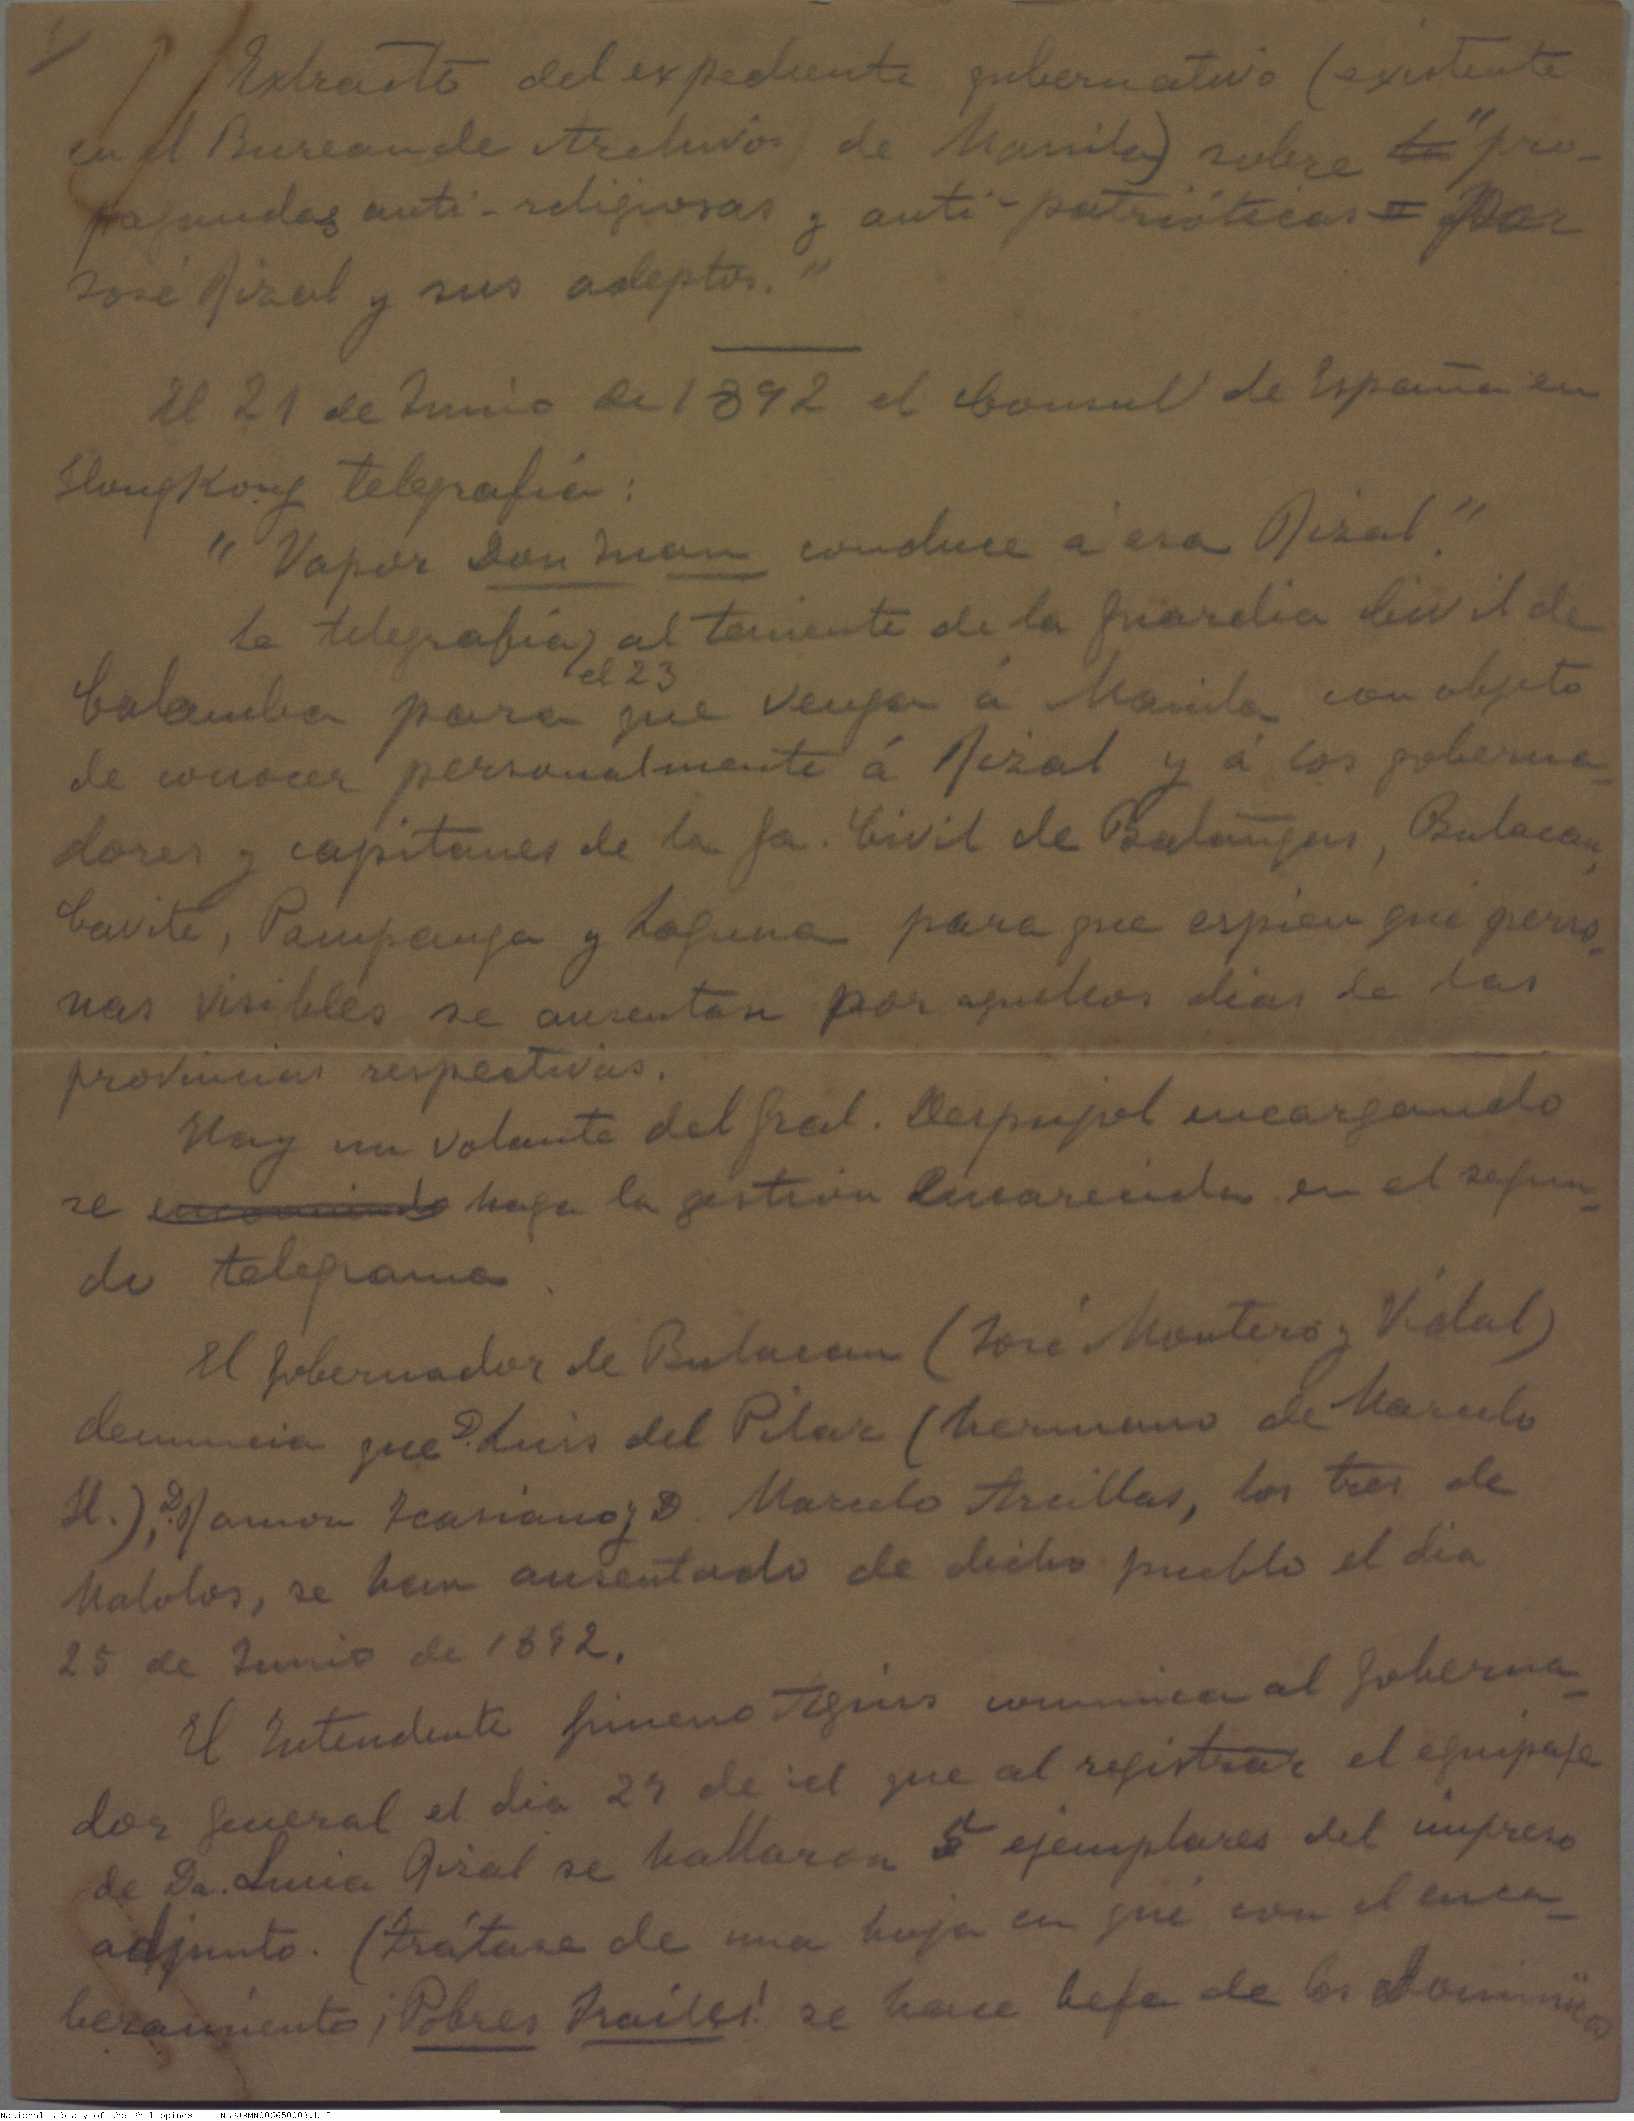 Extracto del expediente gubernativo (existente
en el Bureau de Archivos de Manila) sobre la "pro-
pagandas anti-religiosas y anti-patrióticas = Por
José Rizal y sus adeptos."
El 21 de Junio de 1892 el Consul de España en
HongKong telegrafía:
"Vapor Don Juan conduce á esa Rizal."
Se telegrafía, el 23 al teniente de la Guardia Civil de
Calamba para que venga á Manila con objeto
de conocer personalmente á Rizal y á los goberna-
dores y capitanes de la Ga. Civil de Batangas, Bulacan,
Cavite, Pampanga y Laguna para que espien qué perso-
nas visibles se ausentan por aquellos dias de las
provincias respectivas.
Hay un volante del Gral. Despujol encargando
se encomiende haga la gestion encarecida en el segun-
do telegrama.
El Gobernador de Bulacan (José Montero y Vidal)
denuncia que D. Luis del Pilar (hermano de Marcelo
H.), D. Ramon Icasiano y D. Marcelo Arcillas, los tres de
Malolos, se han ausentado de dicho pueblo el dia
25 de Junio de 1892.
El Intendente Jimeno Agius comunica al Goberna-
dor General el dia 27 de id que al registrar el equipaje
de Da. Lucia Rizal se hallaron ejemplares del impreso
adjunto. (Trátase de una hoja en que con el enca-
bezamiento ¡Pobres Frailes! se hace befa de los Dominicos
National Library of the Philippines